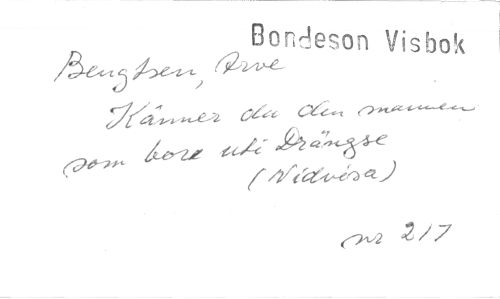 Bondeson Visbok
Bengtsen, Arve
Känner du den mannen
som bore uti Drängse
(Nidvisa)
nr 217